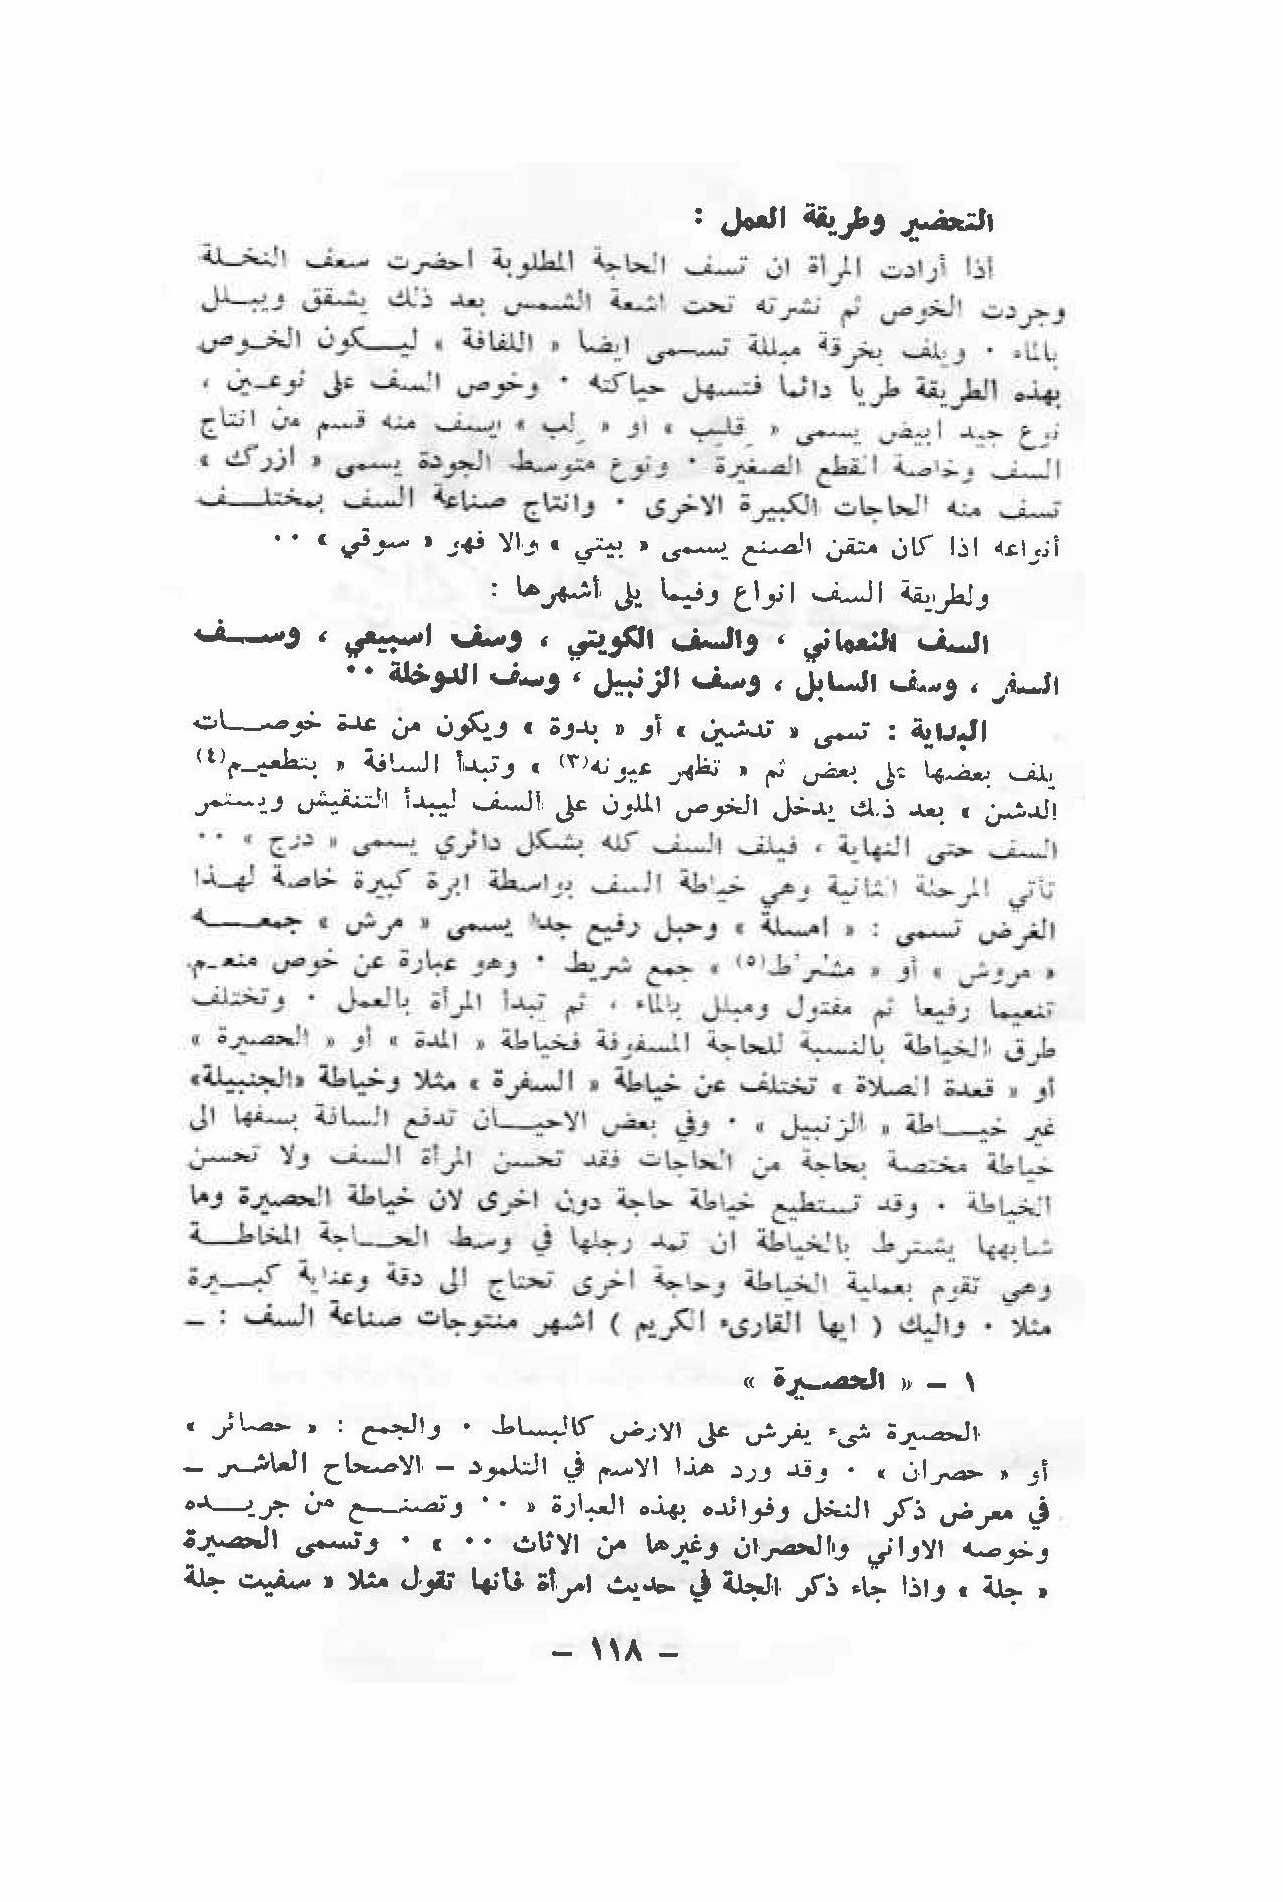 التحضير وطريقة العمل :
اذا أرادت المرأة ان تسف الحاجة المطلوبة احضرت سعف النخلة
وجردت الخوص ثم نشرته تحت اشعة الشمس بعد ذلك يشقق ويبلل
بالماء ٠ ويلف بخرقة مبللة تسمى ايضا « اللفافة » ليكون الخوص
بهذه الطريقة طريا دائما فتسهل حياكته ٠ وخوص السف على نوعين ،
نوع جيد ابيض يسمى « قِلِب » او « لِب » يسف منه قسم من انتاج
السف وخاصة القطع الصغيرة ٠ ونوع متوسط الجودة يسمى « ازرك »
تسف منه الحاجات الكبيرة الاخرى ٠ وانتاج صناعة السف بمختلف
أنواعه اذا كان متقن الصنع يسمى « بيتي » والا فهو « سوقي » ٠٠
ولطريقة السف انواع وفيما يلي أشهرها :
السف النعماني ، والسف الكويتي ، وسف اسبيعي ، وسف
السفر ، وسف السابل ، وسف الزنبيل ، وسف الدوخلة ٠٠
البداية : تسمى « تدشين » أو « بدوة » ويكون من عدة خوصات
يلف بعضها على بعض ثم « تظهر عيونه(٣) » وتبدأ السافة « بتطعيم(٤)
الدشن » بعد ذلك يدخل الخوص الملون على السف ليبدأ التنقيش ويستمر
السف حتى النهاية ، فيلف السف كله بشكل دائري يسمى « درج » ٠٠
تأتي المرحلة الثانية وهي خياطة السف بواسطة ابرة كبيرة خاصة لهذا
الغرض تسمى : « امسلة » وحبل رفيع جدا يسمى « مرش » جمعه
« مروش » أو « مشرط(٥) » جمع شريط ٠ وهو عبارة عن خوص منعم
تنعيما رفيعا ثم مفتول ومبلل بالماء ، ثم تبدأ المرأة بالعمل ٠ وتختلف
طرق الخياطة بالنسبة للحاجة المسفوفة فخياطة « المدة » أو « الحصيرة »
أو « قعدة الصلاة » تختلف عن خياطة « السفرة » مثلا وخياطة «الجنبيلة»
غير خياطة « الزنبيل » ٠ وفي بعض الاحيان تدفع السافة بسفها الى
خياطة مختصة بحاجة من الحاجات فقد تحسن المرأة السف ولا تحسن
الخياطة ٠ وقد تستطيع خياطة حاجة دون اخرى لان خياطة الحصيرة وما
شابهها يشترط بالخياطة ان تمد رجلها في وسط الحاجة المخاطة
وهي تقوم بعملية الخياطة وحاجة اخرى تحتاج الى دقة وعناية كبيرة
مثلا ٠ واليك ( ايها القارىء الكريم ) اشهر منتوجات صناعة السف : ــ
١ ــ « الحصيرة »
الحصيرة شىء يفرش على الارض كالبساط ٠ والجمع : « حصائر »
أو « حصران » ٠ وقد ورد هذا الاسم في التلمود ــ الاصحاح العاشر ــ
في معرض ذكر النخل وفوائده بهذه العبارة « ٠٠ وتصنع من جريده
وخوصه الاواني والحصران وغيرها من الاثاث ٠٠ » ٠ وتسمى الحصيرة
« جلة » واذا جاء ذكر الجلة في حديث امرأة فأنها تقول مثلا « سفيت جلة
ــ ١١٨ ــ